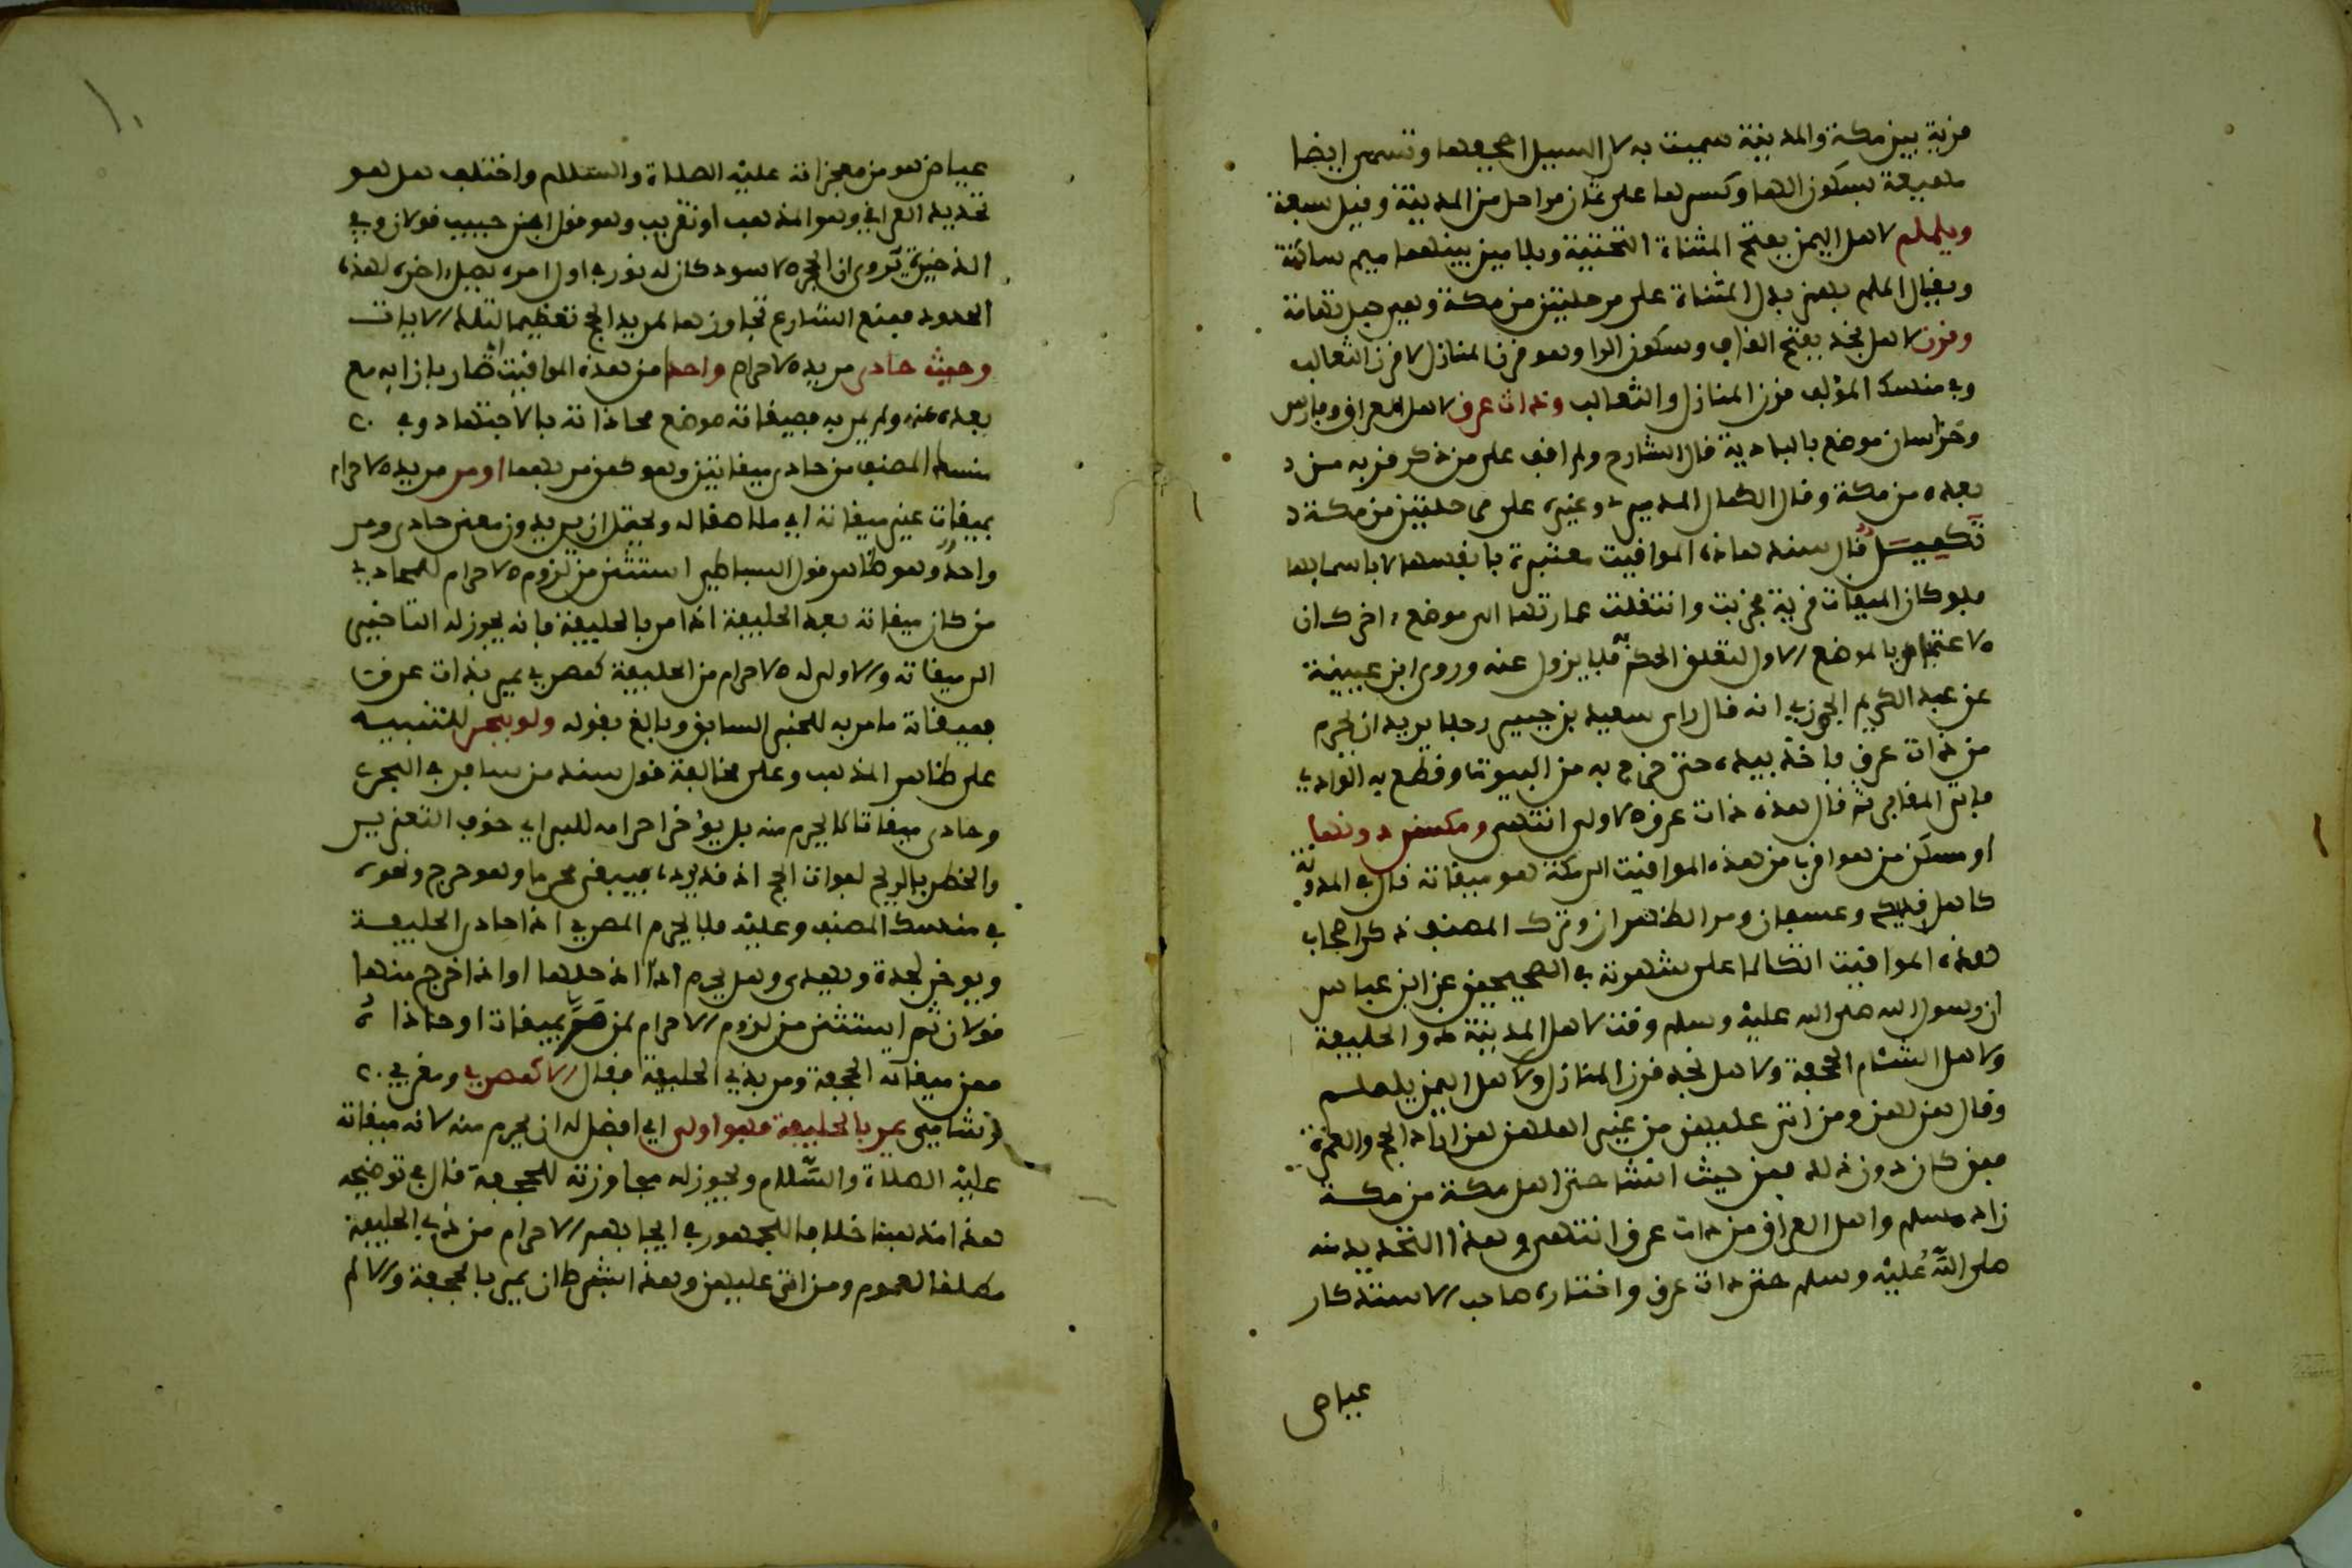 قرية بين مكة والمدينة سميت به لأن السيل اجحفها وتسمى ايضا
مهيعة بسكون الهاء وكسرها على ثمان مراحل من المدينة وقيل سبعة
ويلملم لاهل اليمن بفتح المثناة التحتية وبلامين بينهما ميم ساكنة
ويقال الملم بهمز بدل المثناة على مرحلتين من مكة وهي جبل تهامة
وقرن لاهل نجد بفتح القاف وسكون الرا وهو قرن المنازل لا قرن الثعالب
وفي منسك المؤلف قرن المنازل والثعالب وذات عرق لاهل العراق وفارس
وخراسان موضع بالبادية قال الشارح ولم اقف على من ذكر قربه من
بعده من مكة وقال الكمال الدميري وغيره على مرحلتين من مكة
تكميل قال سند هاذه المواقيت معتبرة بانفسها لا باسمايها
فلو كان الميقات قرية فخربت وانتقلت عمارتها الى موضع اخر كان
الاعتبار بالموضع الاول لتعلق الحكم به فلا يزول عنه وروى ابن عيينة
عن عبد الكريم الجزري انه قال راى سعيد بن جبير رجلا يريد ان يحرم
من ذات عرق فاخذ بيده حتى خرج به من البيوت وقطع به الوادي
فاتى المقابر ثم قال هذه ذات عرق الاولى انتهى ومسكن دونها
او مسكن من هو اقرب من هذه المواقيت الى مكة هو ميقاته قال في المدونة
كاهل قديد وعسفان ومر الظهران وترك المصنف ذكر اصحاب
هذه المواقيت اتكالا على شهرته في الصحيحين عن ابن عباس
ان رسول الله صلى الله عليه وسلم وقت لاهل المدينة ذو الحليفة
ولاهل الشام الجحفة ولاهل نجد قرن المنازل ولاهل اليمن يلملم
وقال هن لهن ومن اتى عليهن من غير اهلهن لمن اراد الحج والعمرة
فمن كان دون ذلك فمن حيث انشا حتى اهل مكة من مكة
زاد مسلم واهل العراق من ذات عرق انتهى وهذا التحديد منه
صلى الله عليه وسلم حتى ذات عرق واختاره صاحب الاستذكار
عياض
عياض هو من معجزاته عليه الصلاة والسلام واختلف هل هو
تحديد العراقي وهو المذهب او تقريب وهو قول ابن حبيب قولان وفي
الذخيرة يروى ان الحجر الاسود كان له نور في اول امره يصل اخره لهذه
الحدود فمنع الشارع تجاوزها لمريد الحج تعظيما لتلك الايات
وحيث حاذى مريد الاحرام واحدا من هذه المواقيت اي صار بازايه مع
بعده عنه ولم يمر به فميقاته موضع محاذاته بالاجتهاد وفي
منسك المصنف من حاذى ميقاتين وهو كمن مر بهما او مر مريد الاحرام
بميقات غير ميقاته اي ملاصقا له ويحتمل ان يريد من معنى حاذى ومر
واحد وهو ظاهر قول البساطي استثنى من لزوم الاحرام للمحاذي
من كان ميقاته بعد الحليفة اذا مر بالحليفة فانه يجوز له التاخير
الى ميقاته والاولى له الاحرام من الحليفة كمصري يمر بذات عرق
فميقاته ما مر به للخبر السابق وبالغ بقوله ولو ببحر للتنبيه
على ظاهر المذهب وعلى مخالفة قول سند من سافر في البحر
وحاذى ميقاتا لا يحرم منه بل يؤخر احرامه للبر اي خوف التغرير
والخطر بالريح لفوات الحج اذ قد يرده فيبقى محرما وهو حرج ونحوه
في منسك المصنف وعليه فلا يحرم المصري اذا حاذى الحليفة
ويوخر لجدة ويهدى وهل يحرم اذا دخلها او اذا خرج منها
قولان ثم استثنى من لزوم الاحرام لمن مر بميقات او حاذاه
فمن ميقاته الجحفة ومر بذي الحليفة فقال الا كمصري ومغربي
وشامي يمر بالحليفة فهو اولى اي افضل له ان يحرم منه لانه ميقاته
عليه الصلاة والسلام ويجوز له مجاوزته للجحفة قال في توضيحه
هذا مذهبنا خلافا للجمهور في ايجابهم الاحرام من ذي الحليفة
مطلقا لعموم ومن اتى عليهن وهذا بشرط ان يمر بالجحفة والا لم